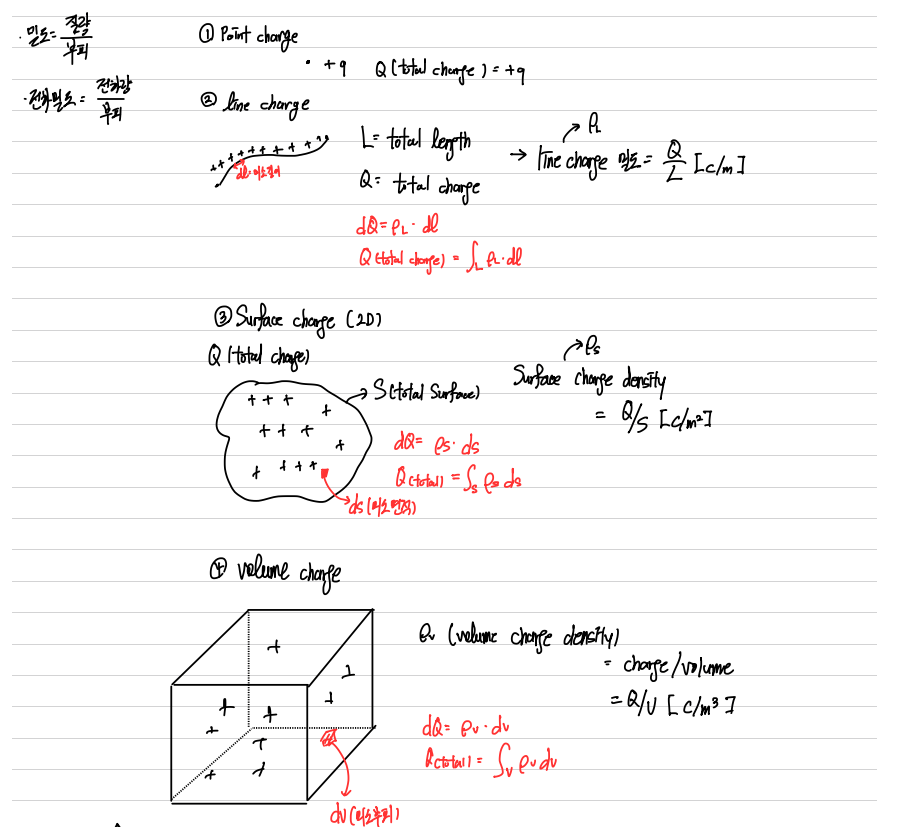 · 밀도 = 질량/부피
· 전하밀도 = 전하량/부피
① Point charge
· +q Q (total charge) = +q
② line charge
+ + + + + + + + + +
dl·미소길이
L = total length
Q = total charge
→ line charge 밀도 = Q/L [c/m]
ρL
dQ = ρL · dl
Q (total charge) = ∫L ρL · dl
③ Surface charge (2D)
Q (total charge)
S (total Surface)
+ + + +
+ + + +
+ + + +
ds (미소면적)
dQ = ρs · ds
Q (total) = ∫s ρs ds
ρs
Surface charge density
= Q/S [c/m²]
④ volume charge
+ + + + + + + + +
dv (미소부피)
ρv (volume charge density)
= charge/volume
= Q/V [c/m³]
dQ = ρv · dv
Q (total) = ∫v ρv dv